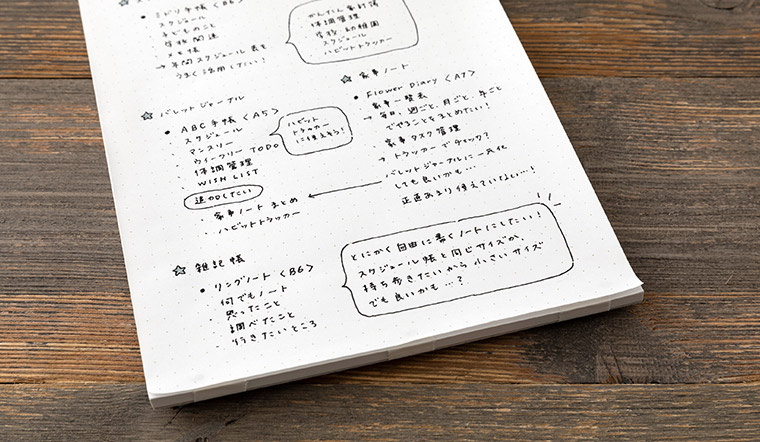 ミドリ手帳〈B6〉
スケジュール
子どものこと
学校関連
メモ帳
→ 年間スケジュール表を
うまく活用したい!
かんたん家計簿
体調管理
学校、幼稚園
スケジュール
ハビットトラッカー
☆ バレットジャーナル
• ABC手帳〈A5〉
スケジュール
マンスリー
ウィークリー TODO
体調管理
WISH LIST
追加したい
家事ノートまとめ
ハビットトラッカー
ハビット
トラッカー
に使えそう!
☆ 家事ノート
• Flower Diary〈A7〉
家事一覧表
→ 毎日、週ごと、月ごと、年ごと
でやることをまとめたい!
家事タスク管理
→ トラッカーでチェック?
バレットジャーナルに一元化
しても良いかも…
正直あまり使えていない…!
☆ 雑記帳
• リングノート〈B6〉
何でもノート
思ったこと
調べたこと
行きたいところ
とにかく自由に書くノートにしたい!
スケジュール帳と同じサイズか、
持ち歩きたいから小さいサイズ
でも良いかも…?